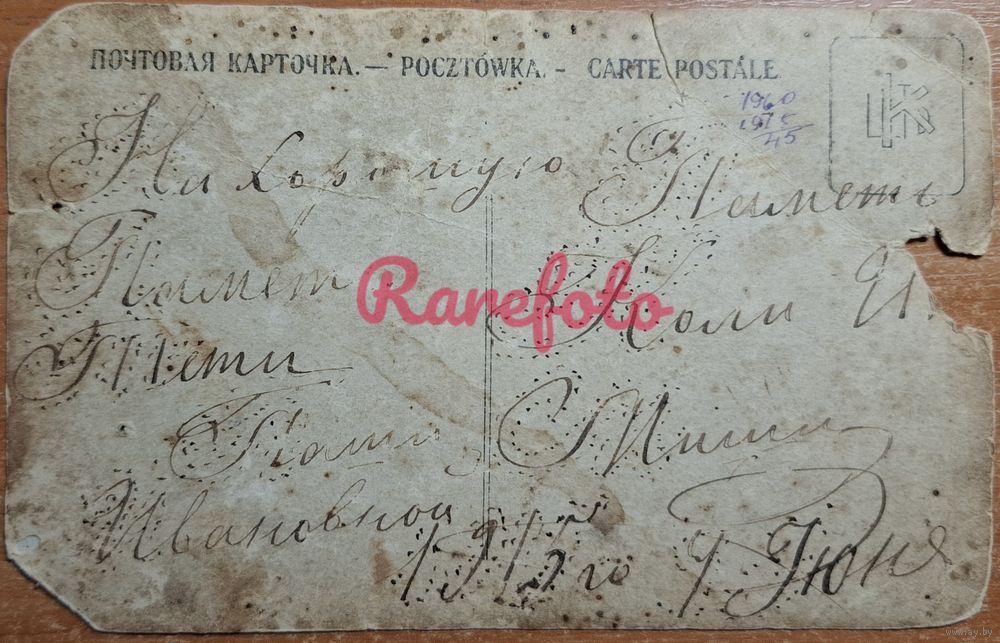 ПОЧТОВАЯ КАРТОЧКА. — POCZTÓWKA. - CARTE POSTALE.
1960
1915
45
На хорошую Память
Памет Коли И
Тети
Паши Миши
Ивановной
1915 го 4 Июня
Rarefoto
www.ay.by